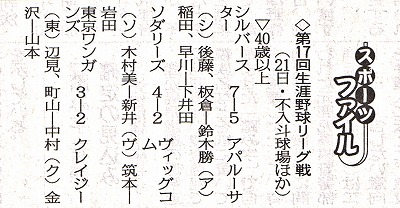 スポーツファイル
◇第17回生涯野球リーグ戦
(21日・不入斗球場ほか)
▽40歳以上
シルバース 7―5 アパルーサ
ター
(シ)後藤、板倉―鈴木勝(ア)
稲田、早川―下井田
ソダリーズ 4―2 ヴィッグコ
ム
(ソ)木村美―新井(ヴ)筑本―
岩田
東京ワンガ 3―2 クレイジー
ンズ
(東)辺見、町山―中村(ク)金
沢―山本